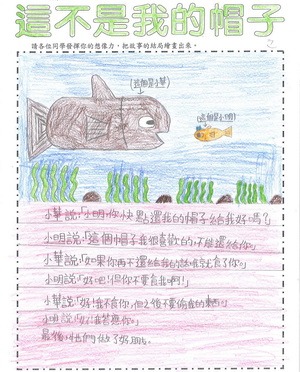 這不是我的帽子
請各位同學發揮你的想像力,把故事的結局繪畫出來。
(這個是小華)
(這個是小明)
小華說:「小明,你快點還我的帽子給我好嗎?
小明說:「這個帽子我很喜歡的,不能還給你。」
小華說:「如果你再不還給我的話,我就食了你。」
小明說:「好吧!但你不要食我啊!」
小華說:「好!我不食你,但之後不要偷我的東西!」
小明說:「好!我答應你。」
最後,他們做了好朋友。